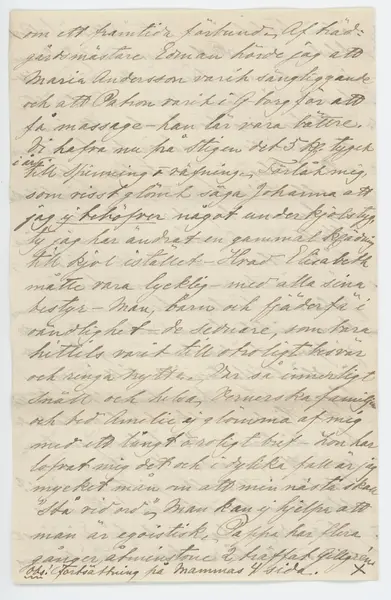 om ett framtida förbund. Af träd-
gårdsmästare Edman hörde jag att
Maria Andersson varit sängliggande
och att Patron varit i G-borg för att
få massage – han lär vara bättre.
Vi hafva nu på Stigen det 5te tyget
i år
till spinning o väfning. Förlåt mig
som visst glömt säga Johanna att
jag ej behöfver något underkjolstyg
ty jag har ändrat en gammal klädning
till kjol istället – Hvad Elisabeth
måtte vara lycklig – med alla sina
bestyr – Man, barn och fjäderfä i
oändlighet – de sednare, som bara
hittils varit till otroligt besvär
och ringa nytta. Var så innerligt
snäll och helsa Vernerska familjen
och bed Amelie ej glömma af mig
med ett långt o roligt bref. Hon har
lofvat mig det och i dylika fall är jag
mycket mån om att min nästa skall
"stå vid ord". Man kan ej hjelpa att
man är egoistisk. Pappa har flera
gånger, åtminstone 2, träffat Gillgrens
Obs! Fortsättning på Mammas 4 sida. x